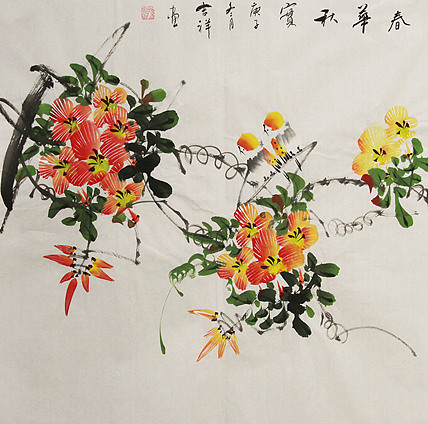 春華秋實
庚子冬月
吉祥畫